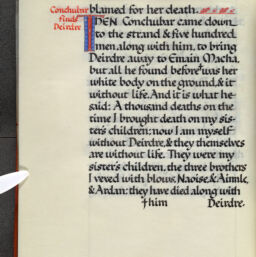 Conchubar
finds
Deirdre
blamed for her death.
THEN Conchubar came down
to the strand & five hundred
men along with him, to bring
Deirdre away to Emain Macha,
but all he found before was her
white body on the ground, & it
without life. And it is what he
said: A thousand deaths on the
time I brought death on my sis-
ter's children; now I am myself
without Deirdre, & they themselves
are without life. They were my
sister's children, the three brothers
I vexed with blows, Naoise, & Ainnle,
& Ardan; they have died along with
him Deirdre.